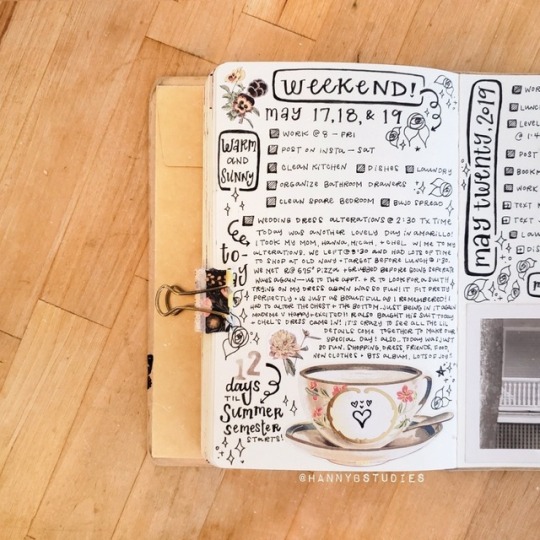 WEEKEND!
MAY 17, 18, & 19
WARM
AND
SUNNY
WORK @ 8 - FRI
POST ON INSTA - SAT
CLEAN KITCHEN DISHES LAUNDRY
ORGANIZE BATHROOM DRAWERS
CLEAN SPARE BEDROOM BUJO SPREAD
WEDDING DRESS ALTERATIONS @ 2:30 TX TIME
to-
day
TODAY WAS ANOTHER LOVELY DAY IN AMARILLO!
I TOOK MY MOM, HANNA, MICAH, + CHEL W/ ME TO MY
ALTERATIONS. WE LEFT @ 9:30 AND HAD LOTS OF TIME
TO SHOP AT OLD NAVY + TARGET BEFORE LUNCH @ 1:30.
WE MET R @ 575° PIZZA + GRUBBED BEFORE GOING SEPERATE
WAYS AGAIN - US TO THE APPT. + R TO LOOK FOR A SUIT!!
TRYING ON MY DRESS AGAIN WAS SO FUN! IT FIT PRETTY
PERFECTLY + IS JUST AS BEAUTIFUL AS I REMEMBERED!
HAD TO ALTER THE CHEST + THE BOTTOM. JUST BEING IN IT AGAIN
MADE ME V HAPPY + EXCITED!! R ALSO BOUGHT HIS SUIT TODAY
+ CHEL'S DRESS CAME IN! IT'S CRAZY TO SEE ALL THE LIL
DETAILS COME TOGETHER TO MAKE OUR
SPECIAL DAY! ALSO, TODAY WAS JUST
SO FUN. SHOPPING, DRESS, FRIENDS, FOOD,
NEW CLOTHES + BTS ALBUM, LOTS OF JOY!
12
days
TIL
Summer
semester
STARTS!
MAY TWENTY, 2019
WOR
LUNC
LEVEL
@ 1:4
POST
BOOKM
WORK
TEXT M
TEXT
LAU
DIS
@HANNYBSTUDIES